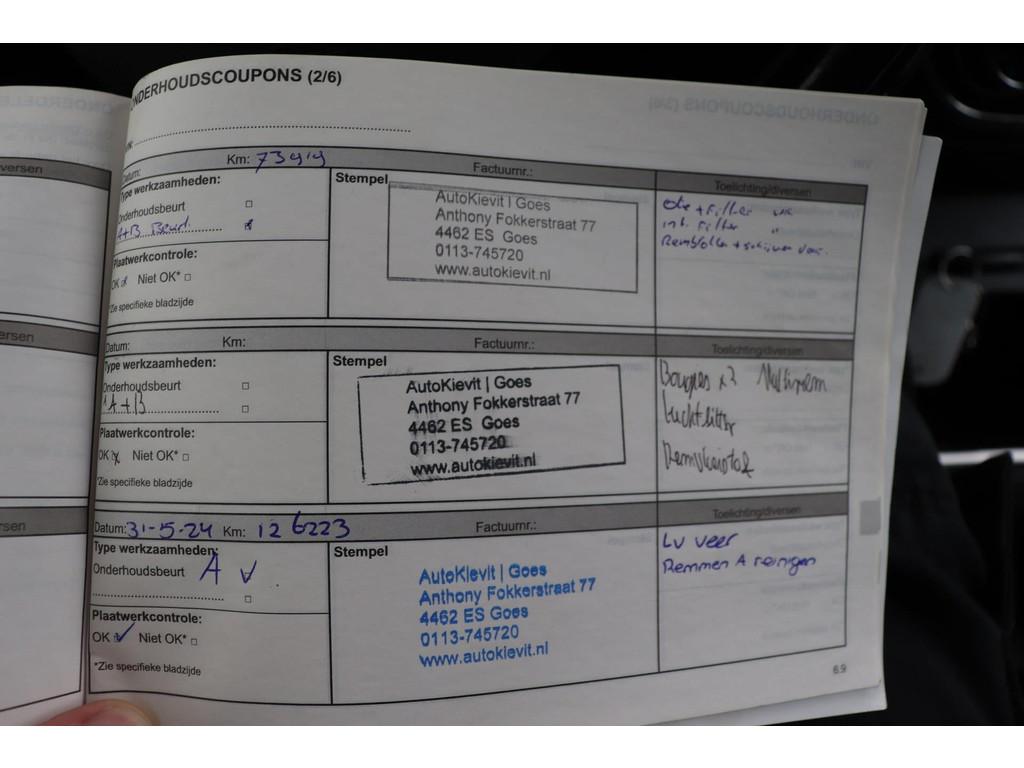 ONDERHOUDSCOUPONS (2/6)
Datum: Km: 73919 Factuurnr.: Toelichting/diversen
Type werkzaamheden:
Onderhoudsbeurt
A+B Beurt
Plaatwerkcontrole:
OK Niet OK*
*Zie specifieke bladzijde
Stempel
AutoKievit | Goes
Anthony Fokkerstraat 77
4462 ES Goes
0113-745720
www.autokievit.nl
Olie + Filter
int. Filter "
Remblokken + schijven voor.
Datum: Km: Factuurnr.: Toelichting/diversen
Type werkzaamheden:
Onderhoudsbeurt
A+B
Plaatwerkcontrole:
OK Niet OK*
*Zie specifieke bladzijde
Stempel
AutoKievit | Goes
Anthony Fokkerstraat 77
4462 ES Goes
0113-745720
www.autokievit.nl
Bougies x3 Multiriem
Luchtfilter
Remvloeistof
Datum: 31-5-24 Km: 126223 Factuurnr.: Toelichting/diversen
Type werkzaamheden:
Onderhoudsbeurt A
Plaatwerkcontrole:
OK Niet OK*
*Zie specifieke bladzijde
Stempel
AutoKievit | Goes
Anthony Fokkerstraat 77
4462 ES Goes
0113-745720
www.autokievit.nl
LV veer
Remmen A reinigen
6.9
versen
ersen
sen